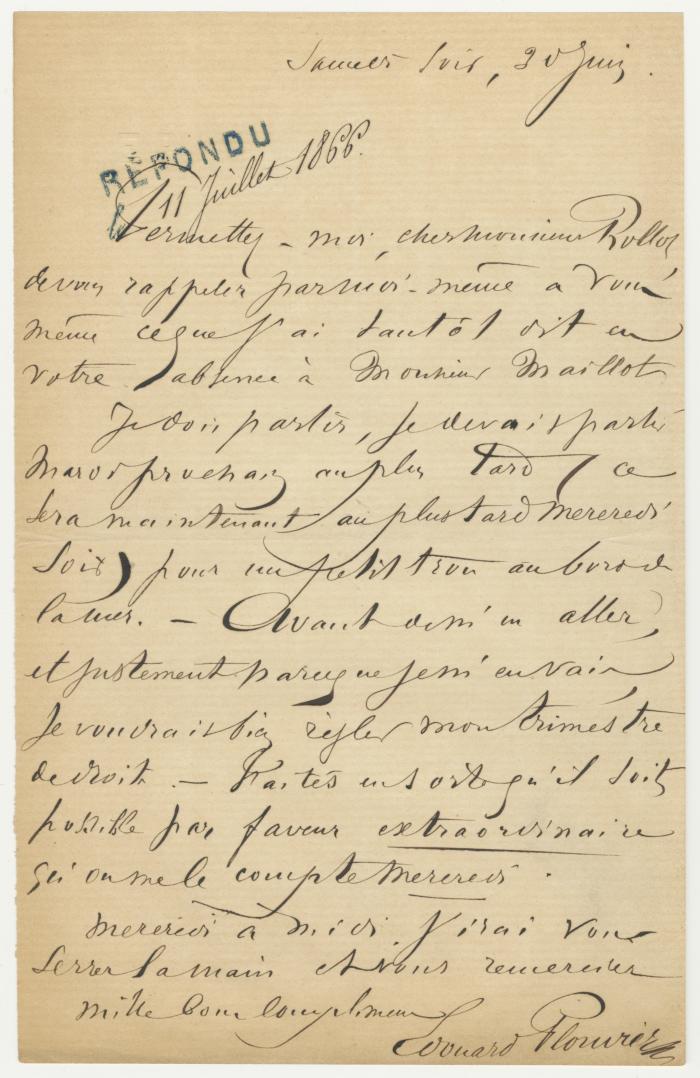 Samedi soir, 30 Juin.
RÉPONDU
le 11 Juillet 1866.
Permettez-moi, cher monsieur Rollot
de vous rappeler par moi-même à vous
même ce que j'ai tantôt dit en
votre absence à Monsieur Maillot
Je dois partir, je devais partir
Mardi prochain au plus tard (ce
sera maintenant au plus tard mercredi
soir) pour un petit trou au bord de
la mer. — Avant de m'en aller,
et justement parceque je m'en vais
je voudrais bien régler mon trimestre
de droits. — Faites en sorte qu'il soit
possible par faveur extraordinaire
qu'on me le compte mercredi.
mercredi à midi j'irai vous
serrer la main et vous remercier
mille bons compliments
Edouard Plouvier